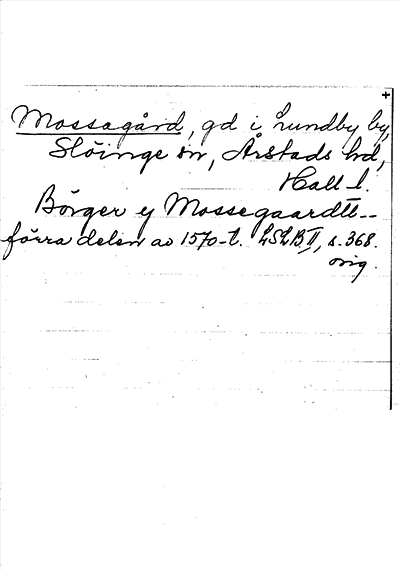 +
Mossagård, gd i Lundby by,
Slöinge sn, Årstads hd,
Hall l.
Börger y Mossegaardtt--
förra delen av 1570-t. LSLB II, s. 368.
orig.